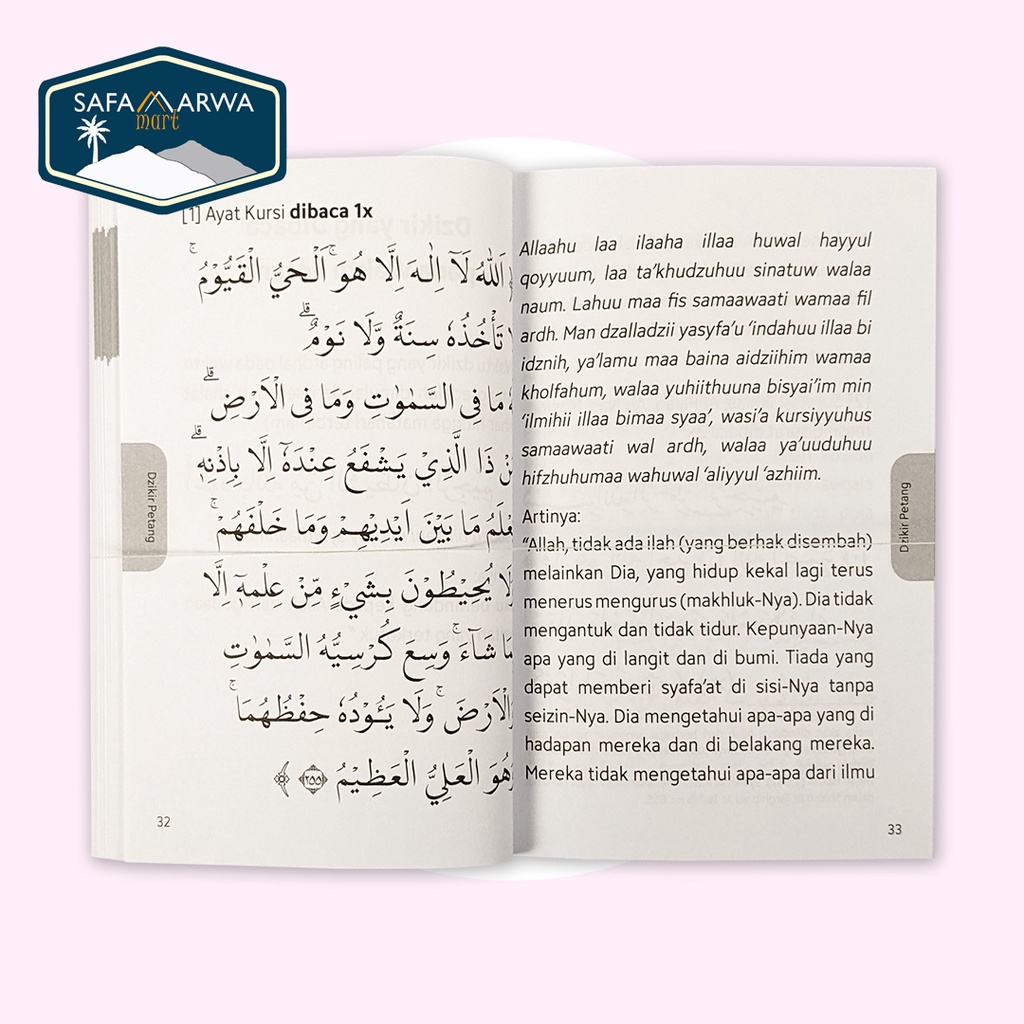 SAFA MARWA
mart
[1] Ayat Kursi dibaca 1x
اَللّٰهُ لَآ اِلٰهَ اِلَّا هُوَۚ اَلْحَيُّ الْقَيُّوْمُ ۚ
تَأْخُذُهٗ سِنَةٌ وَّلَا نَوْمٌۗ
مَا فِى السَّمٰوٰتِ وَمَا فِى الْاَرْضِۗ
ذَا الَّذِيْ يَشْفَعُ عِنْدَهٗٓ اِلَّا بِاِذْنِهٖۗ
مَا بَيْنَ اَيْدِيْهِمْ وَمَا خَلْفَهُمْۚ
يُحِيْطُوْنَ بِشَيْءٍ مِّنْ عِلْمِهٖٓ اِلَّا
شَاۤءَۚ وَسِعَ كُرْسِيُّهُ السَّمٰوٰتِ
وَلَا يَـُٔوْدُهٗ حِفْظُهُمَاۚ
الْعَلِيُّ الْعَظِيْمُ ﴿٢٥٥﴾
32
Dzikir Petang
Allaahu laa ilaaha illaa huwal hayyul
qoyyuum, laa ta'khudzuhuu sinatuw walaa
naum. Lahuu maa fis samaawaati wamaa fil
ardh. Man dzalladzii yasyfa'u 'indahuu illaa bi
idznih, ya'lamu maa baina aidziihim wamaa
kholfahum, walaa yuhiithuuna bisyai'im min
'ilmihii illaa bimaa syaa', wasi'a kursiyyuhus
samaawaati wal ardh, walaa ya'uuduhuu
hifzhuhumaa wahuwal 'aliyyul 'azhiim.
Artinya:
"Allah, tidak ada ilah (yang berhak disembah)
melainkan Dia, yang hidup kekal lagi terus
menerus mengurus (makhluk-Nya). Dia tidak
mengantuk dan tidak tidur. Kepunyaan-Nya
apa yang di langit dan di bumi. Tiada yang
dapat memberi syafa'at di sisi-Nya tanpa
seizin-Nya. Dia mengetahui apa-apa yang di
hadapan mereka dan di belakang mereka.
Mereka tidak mengetahui apa-apa dari ilmu
33
Dzikir Petang